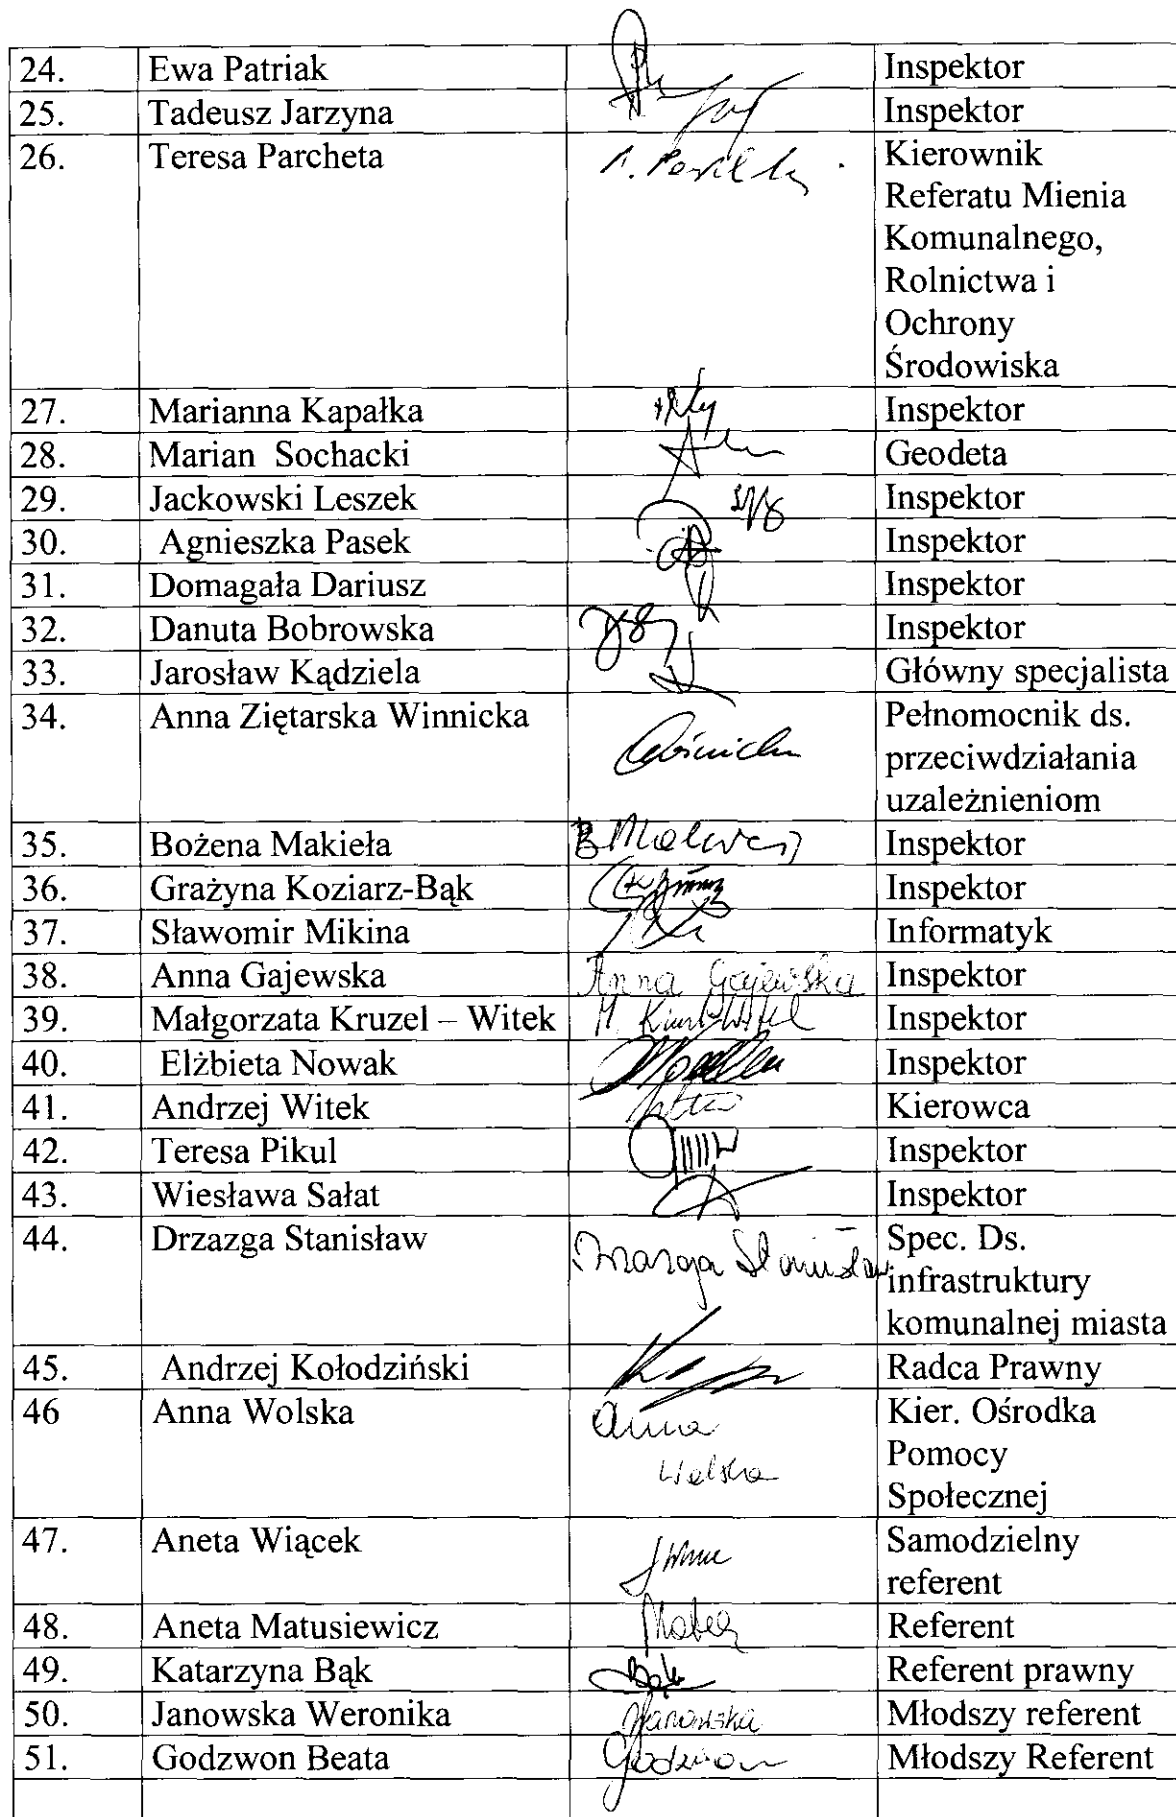 24. Ewa Patriak Inspektor
25. Tadeusz Jarzyna Inspektor
26. Teresa Parcheta Kierownik
Referatu Mienia
Komunalnego,
Rolnictwa i
Ochrony
Środowiska
27. Marianna Kapałka Inspektor
28. Marian Sochacki Geodeta
29. Jackowski Leszek Inspektor
30. Agnieszka Pasek Inspektor
31. Domagała Dariusz Inspektor
32. Danuta Bobrowska Inspektor
33. Jarosław Kądziela Główny specjalista
34. Anna Ziętarska Winnicka Pełnomocnik ds.
przeciwdziałania
uzależnieniom
35. Bożena Makieła Inspektor
36. Grażyna Koziarz-Bąk Inspektor
37. Sławomir Mikina Informatyk
38. Anna Gajewska Anna Gajewska Inspektor
39. Małgorzata Kruzel – Witek Inspektor
40. Elżbieta Nowak Inspektor
41. Andrzej Witek Kierowca
42. Teresa Pikul Inspektor
43. Wiesława Sałat Inspektor
44. Drzazga Stanisław Drzazga Stanisław Spec. Ds.
infrastruktury
komunalnej miasta
45. Andrzej Kołodziński Radca Prawny
46 Anna Wolska Anna Kier. Ośrodka
Wolska Pomocy
Społecznej
47. Aneta Wiącek Samodzielny
referent
48. Aneta Matusiewicz Referent
49. Katarzyna Bąk Bąk Referent prawny
50. Janowska Weronika Janowska Młodszy referent
51. Godzwon Beata Godzwon Młodszy Referent